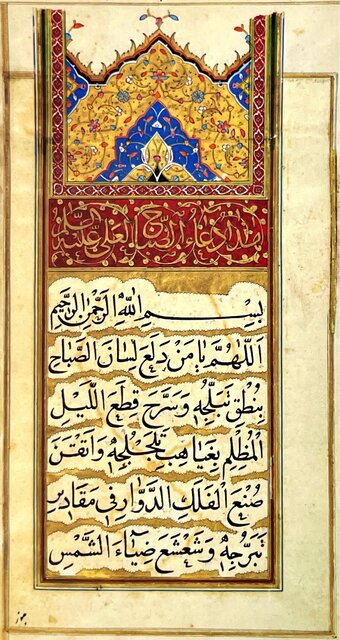 هذا دعاء الصباح لعلي عليه السلام
بِسْمِ اللّٰهِ الرَّحْمٰنِ الرَّحِيْمِ
اَللّٰهُمَّ يَا مَنْ دَلَعَ لِسَانَ الصَّبَاحِ
بِنُطْقِ تَبَلُّجِهٖ وَسَرَّحَ قِطَعَ اللَّيْلِ
الْمُظْلِمِ بِغَيَاهِبِ تَلَجْلُجِهٖ وَاَتْقَنَ
صُنْعَ الْفَلَكِ الدَّوَّارِ فِيْ مَقَادِيْرِ
تَبَرُّجِهٖ وَشَعْشَعَ ضِيَآءَ الشَّمْسِ